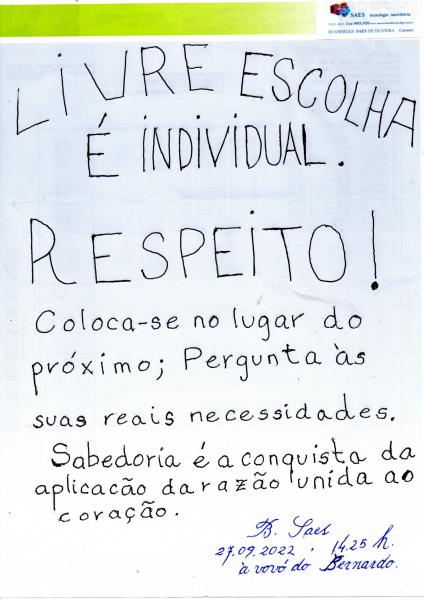 SAES tecnologia imobiliária
BOANERGES SAES DE OLIVEIRA Corretor
LIVRE ESCOLHA
É INDIVIDUAL.
RESPEITO!
Coloca-se no lugar do
próximo; Pergunta às
suas reais necessidades.
Sabedoria é a conquista da
aplicacão da razão unida ao
coração.
B. Saes
27.09.2022, 14.25 h.
à vovó do Bernardo.